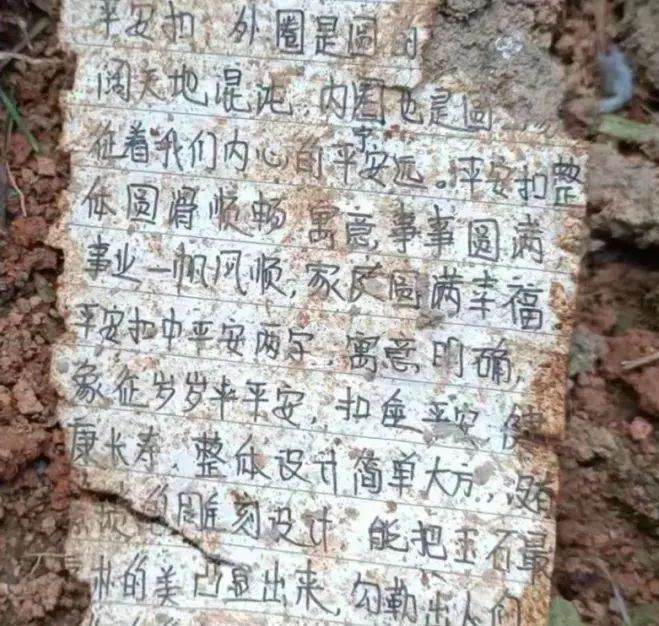 平安扣 外圈是圆的
阔天地混沌,内圈也是圆
征着我们内心的平安宁远。平安扣整
体圆滑顺畅 寓意事事圆满
事业一帆风顺,家庭圆满幸福
平安扣中平安两字,寓意明确,
象征岁岁年平安,扣座平安 健
康长寿,整体设计简单大方,没有
的雕刻设计 能把玉石最
的美凸显出来,勾勒出人们